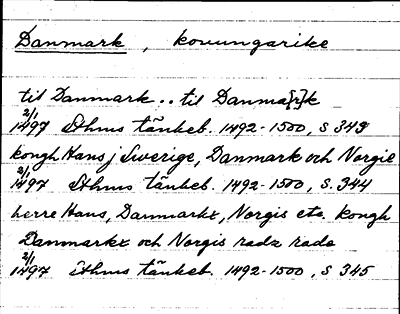 Danmark, konungarike
til Danmark .. til Danma[r]k
2/1
1497 Sthms tänkeb. 1492-1500, S 343
kongh Hans j Swerige, Danmark och Norgie
2/1
1497 Sthms tänkeb. 1492-1500, S. 344
herre Hans, Danmarkx, Norgis etc. kongh
Danmarkx och Norgis radz rade
2/1
1497 Sthms tänkeb. 1492-1500, S 345